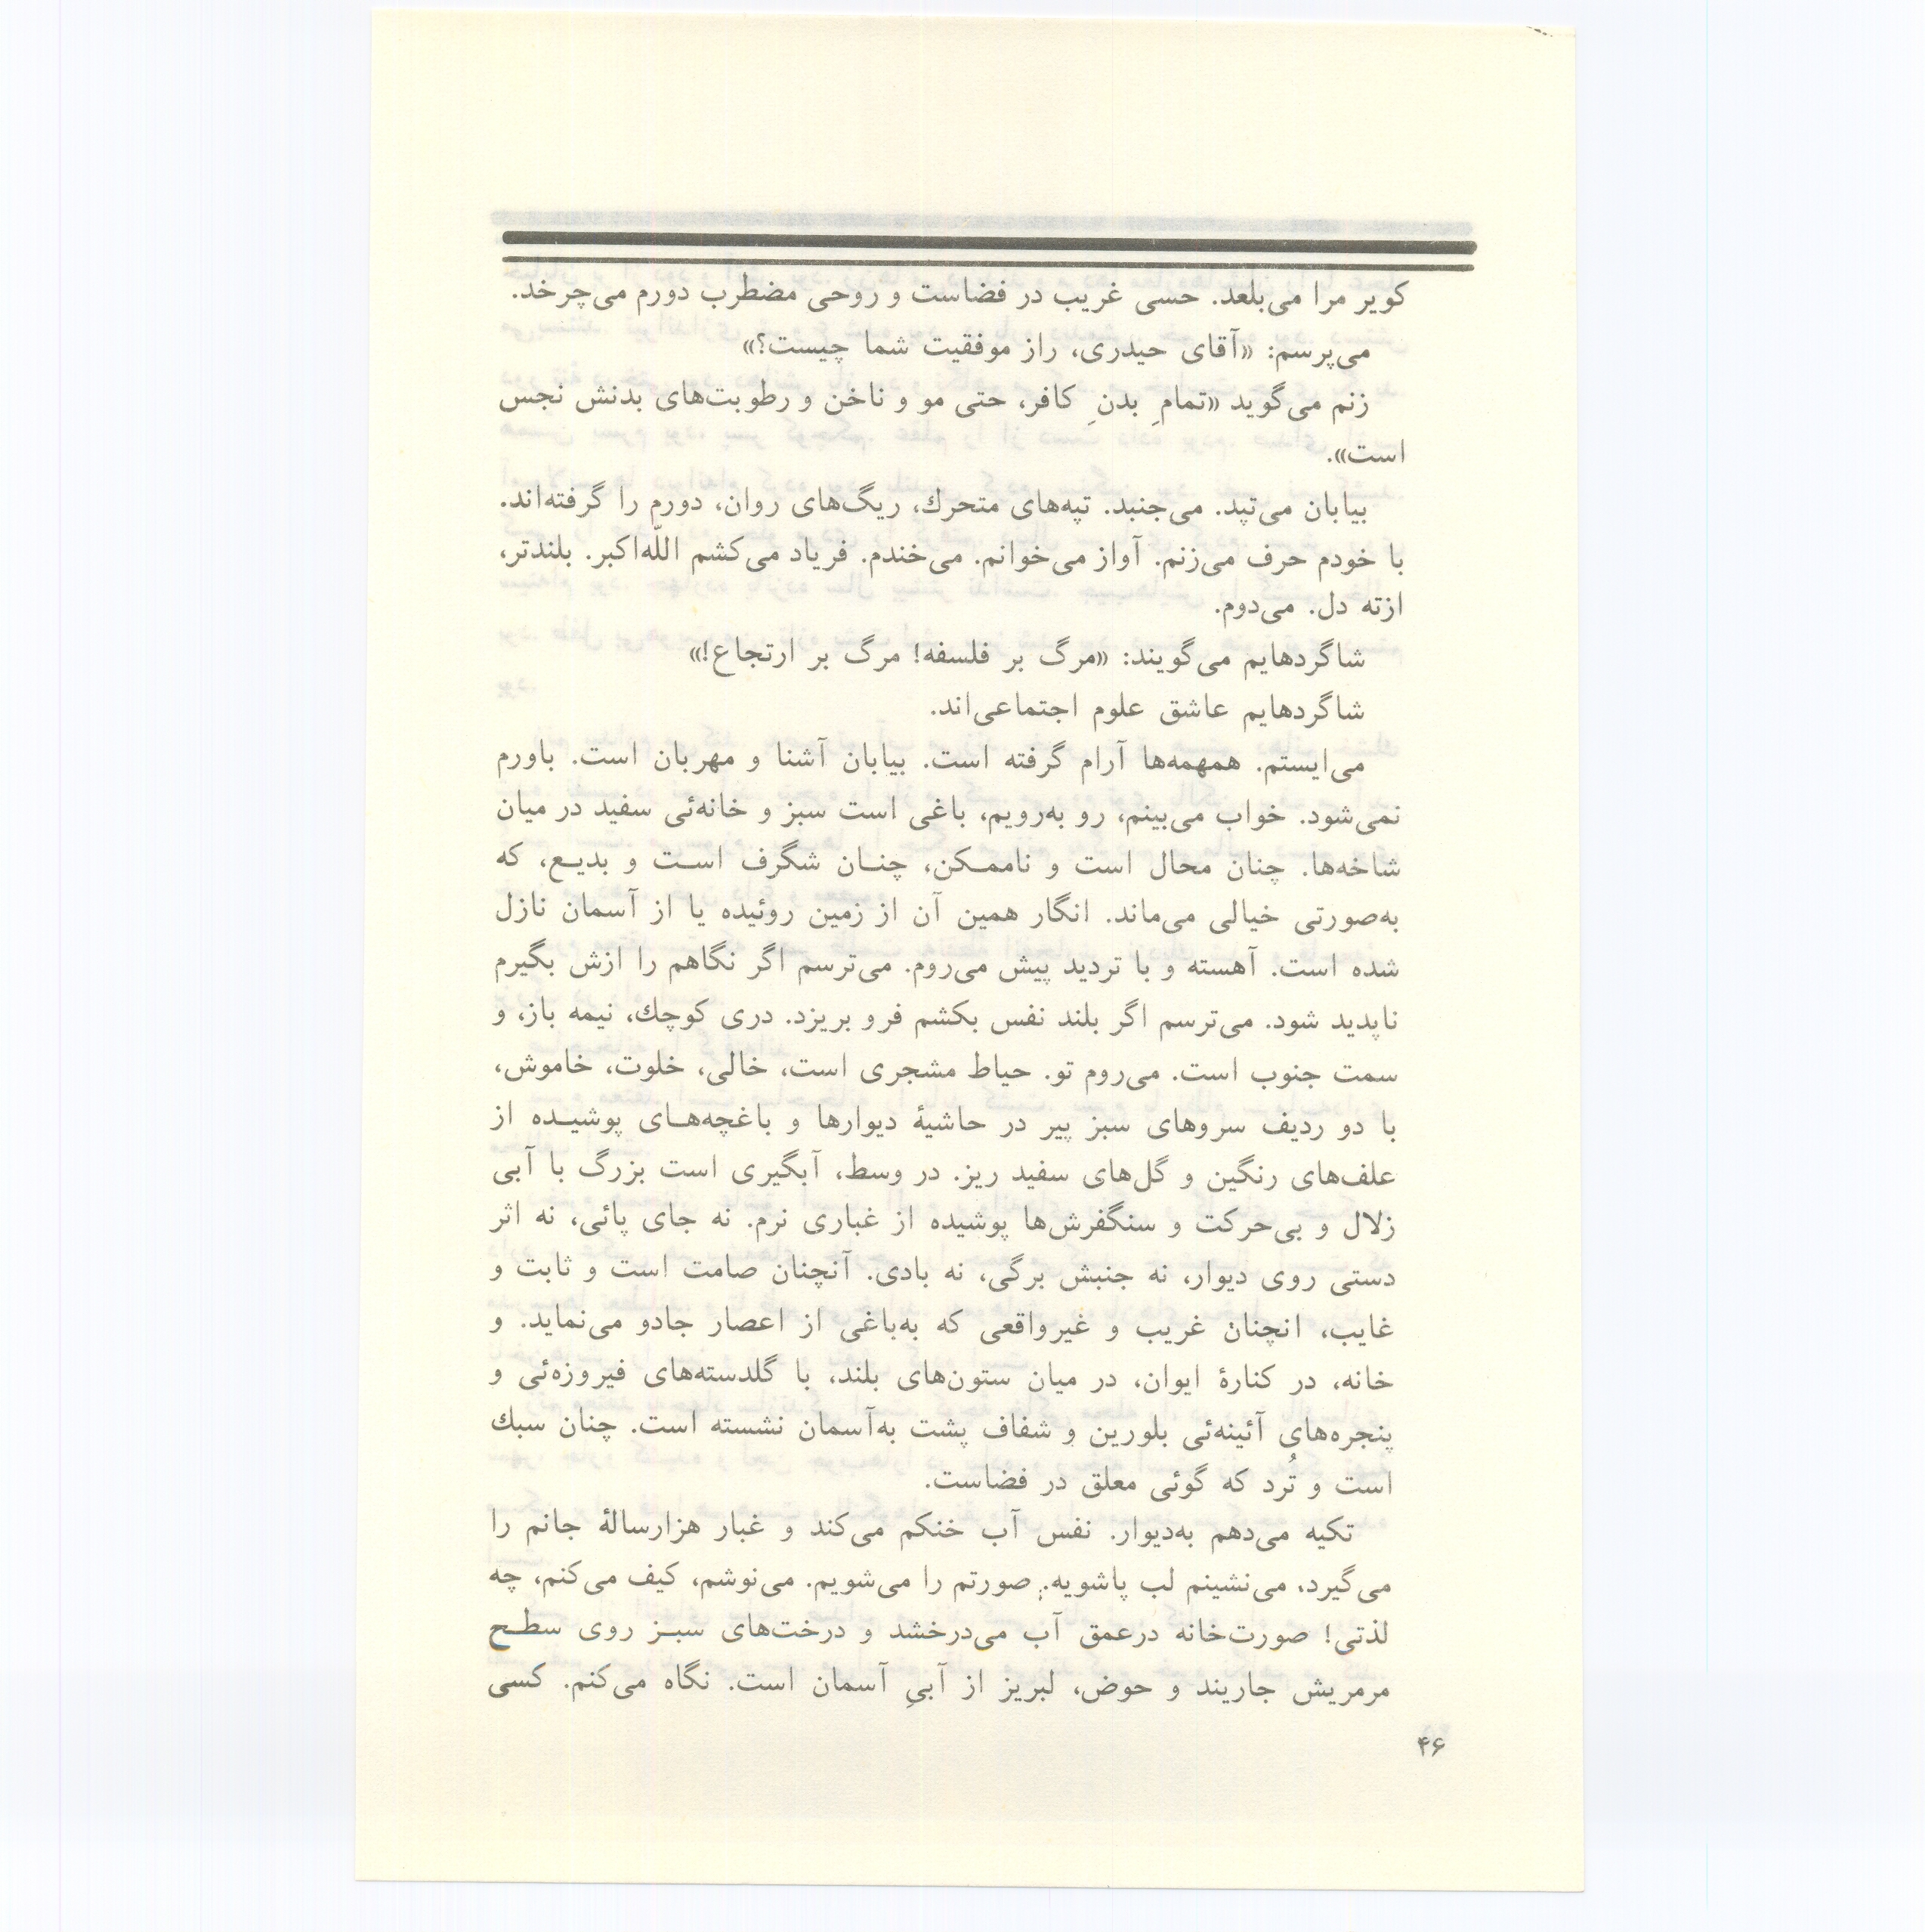 کویر مرا می‌بلعد. حسی غریب در فضاست و روحی مضطرب دورم می‌چرخد.
می‌پرسم: «آقای حیدری، راز موفقیت شما چیست؟»
زنم می‌گوید «تمامِ بدنِ کافر، حتی مو و ناخن و رطوبت‌های بدنش نجس
است».
بیابان می‌تپد. می‌جنبد. تپه‌های متحرك، ریگ‌های روان، دورم را گرفته‌اند.
با خودم حرف می‌زنم. آواز می‌خوانم. می‌خندم. فریاد می‌کشم اللّه‌اکبر. بلندتر،
ازته دل. می‌دوم.
شاگردهایم می‌گویند: «مرگ بر فلسفه! مرگ بر ارتجاع!»
شاگردهایم عاشق علوم اجتماعی‌اند.
می‌ایستم. همهمه‌ها آرام گرفته است. بیابان آشنا و مهربان است. باورم
نمی‌شود. خواب می‌بینم، رو به‌رویم، باغی است سبز و خانه‌ئی سفید در میان
شاخه‌ها. چنان محال است و ناممـکن، چنـان شگرف اسـت و بدیـع، که
به‌صورتی خیالی می‌ماند. انگار همین آن از زمین روئیده یا از آسمان نازل
شده است. آهسته و با تردید پیش می‌روم. می‌ترسم اگر نگاهم را ازش بگیرم
ناپدید شود. می‌ترسم اگر بلند نفس بکشم فرو بریزد. دری کوچك، نیمه باز، و
سمت جنوب است. می‌روم تو. حیاط مشجری است، خالی، خلوت، خاموش،
با دو ردیف سروهای سبز پیر در حاشیۀ دیوارها و باغچه‌هـای پوشیـده از
علف‌های رنگین و گل‌های سفید ریز. در وسط، آبگیری است بزرگ با آبی
زلال و بی‌حرکت و سنگفرش‌ها پوشیده از غباری نرم. نه جای پائی، نه اثر
دستی روی دیوار، نه جنبش برگی، نه بادی. آنچنان صامت است و ثابت و
غایب، انچنان غریب و غیرواقعی که به‌باغی از اعصار جادو می‌نماید. و
خانه، در کنارۀ ایوان، در میان ستون‌های بلند، با گلدسته‌های فیروزه‌ئی و
پنجره‌های آئینه‌ئی بلورین و شفاف پشت به‌آسمان نشسته است. چنان سبك
است و تُرد که گوئی معلق در فضاست.
تکیه می‌دهم به‌دیوار. نفس آب خنکم می‌کند و غبار هزارسالۀ جانم را
می‌گیرد، می‌نشینم لب پاشویه. صورتم را می‌شویم. می‌نوشم، کیف می‌کنم، چه
لذتی! صورت‌خانه درعمق آب می‌درخشد و درخت‌های سبـز روی سطـح
مرمریش جاریند و حوض، لبریز از آبیِ آسمان است. نگاه می‌کنم. کسی
۴۶